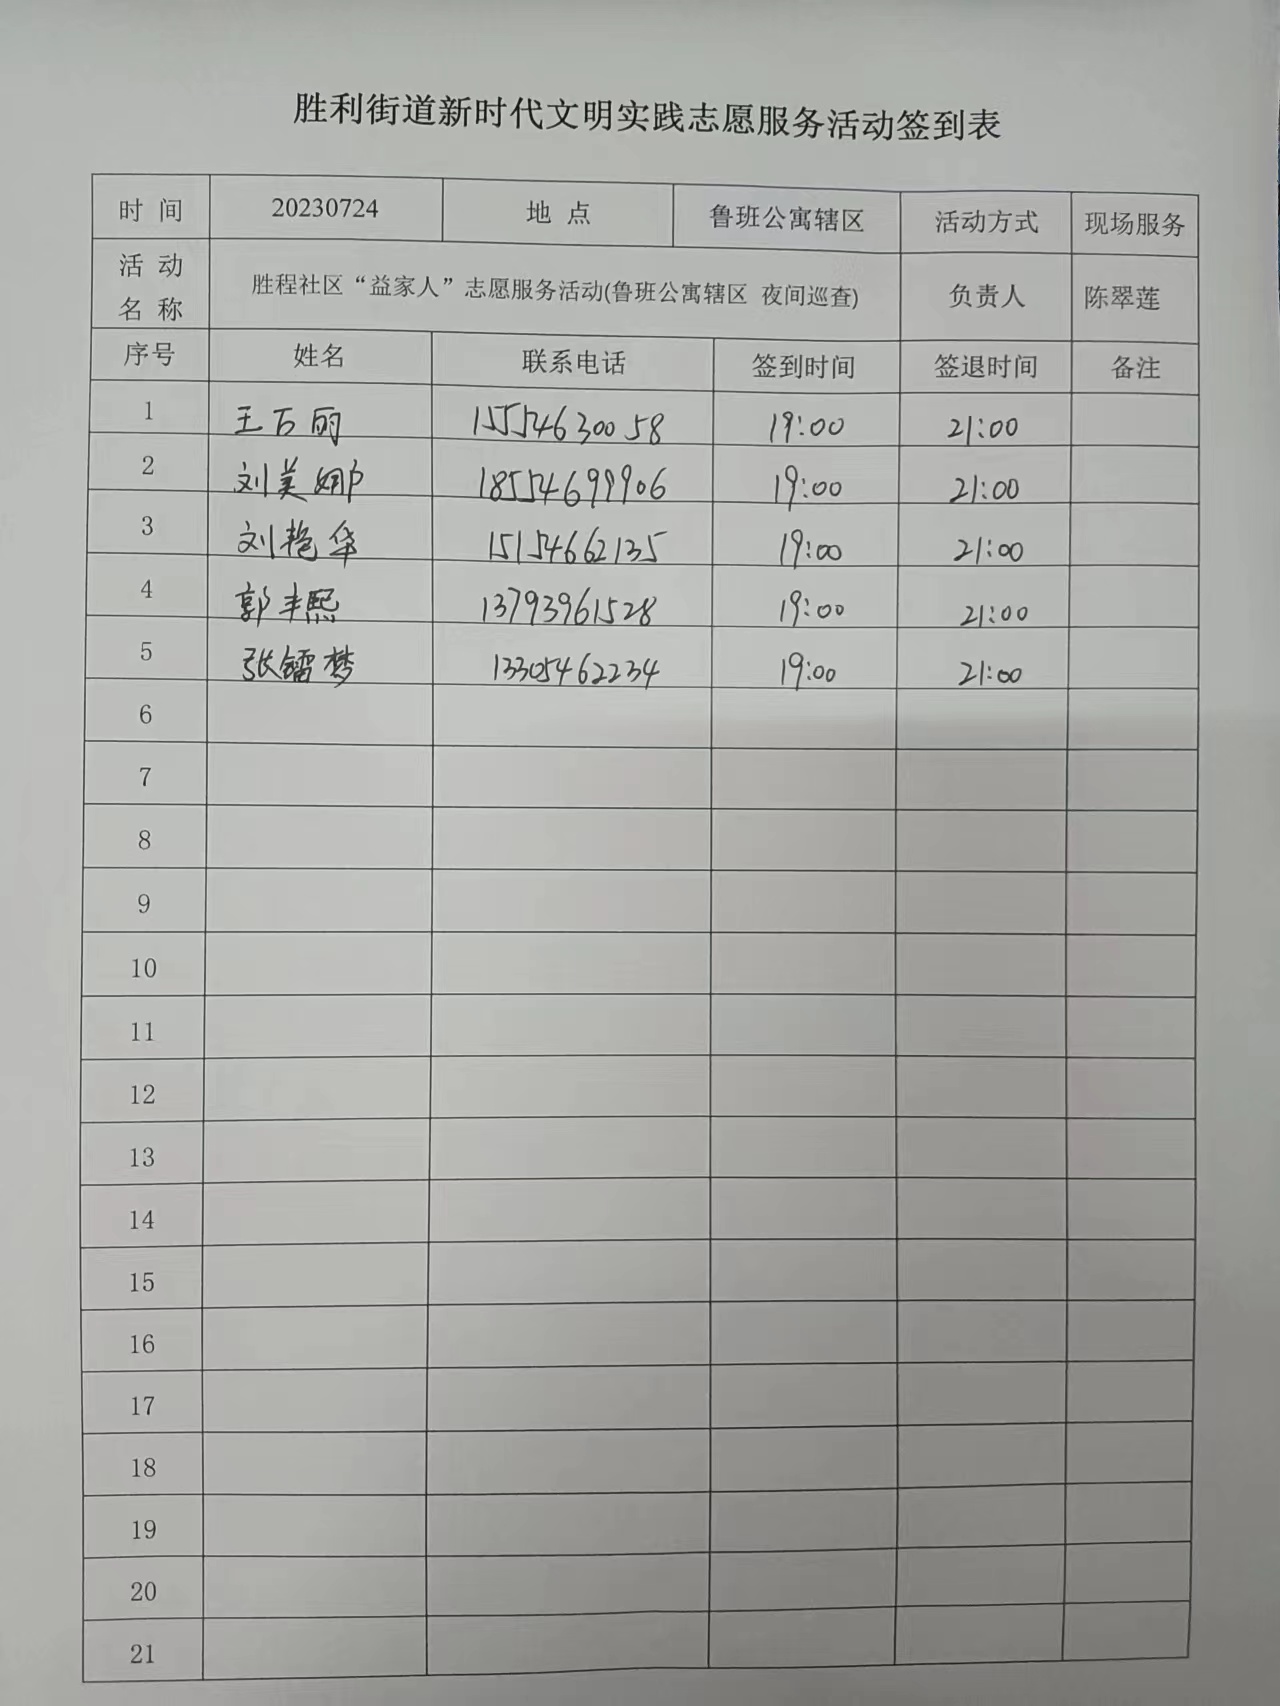 胜利街道新时代文明实践志愿服务活动签到表
时 间 20230724 地 点 鲁班公寓辖区 活动方式 现场服务
活 动
名 称 胜程社区“益家人”志愿服务活动(鲁班公寓辖区 夜间巡查) 负责人 陈翠莲
序号 姓名 联系电话 签到时间 签退时间 备注
1 王万丽 15554630058 19:00 21:00
2 刘美娜 18554699906 19:00 21:00
3 刘艳华 15154662135 19:00 21:00
4 郭丰熙 13793961528 19:00 21:00
5 张镭梦 13305462234 19:00 21:00
6
7
8
9
10
11
12
13
14
15
16
17
18
19
20
21